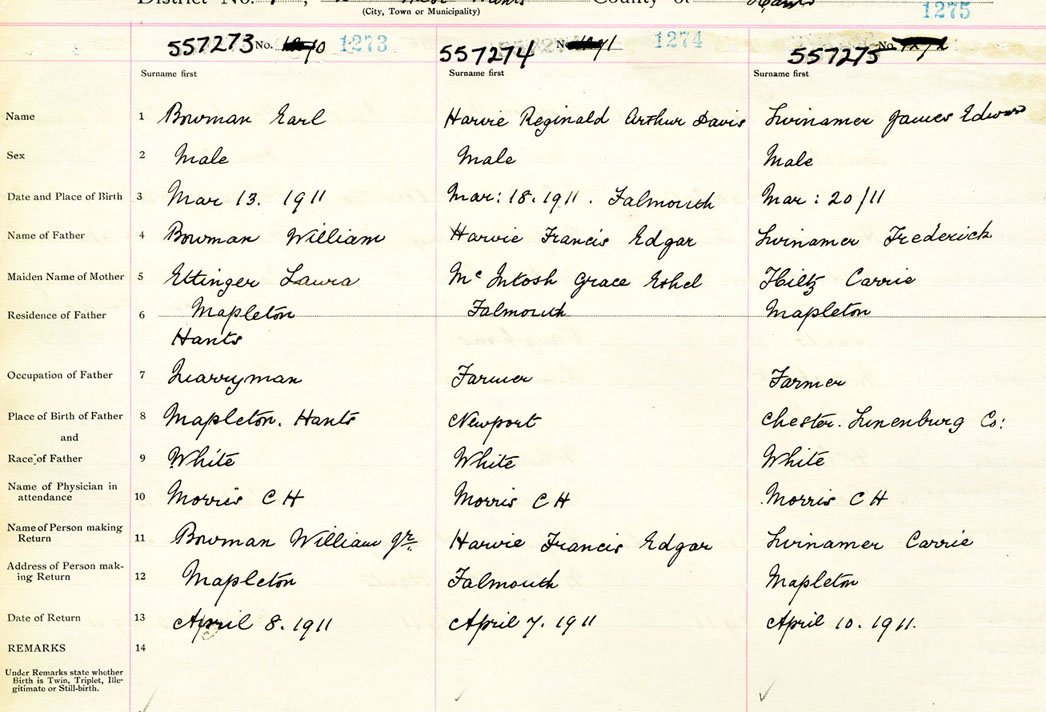 District No. County of Hants
(City, Town or Municipality)
1275
557273 No. 1273 557274 No. 1274 557275 No.
Surname first Surname first Surname first
Name 1 Bowman Earl Harvie Reginald Arthur Davis Swinamer James Edward
Sex 2 Male Male Male
Date and Place of Birth 3 Mar 13. 1911 Mar: 18. 1911. Falmouth Mar: 20/11
Name of Father 4 Bowman William Harvie Francis Edgar Swinamer Frederick
Maiden Name of Mother 5 Ettinger Laura McIntosh Grace Ethel Hiltz Carrie
Residence of Father 6 Mapleton Falmouth Mapleton
Hants
Occupation of Father 7 Quarryman Farmer Farmer
Place of Birth of Father 8 Mapleton. Hants Newport Chester. Lunenburg Co:
and
Race of Father 9 White White White
Name of Physician in
attendance 10 Morris C H Morris C H Morris C H
Name of Person making
Return 11 Bowman William Jr. Harvie Francis Edgar Swinamer Carrie
Address of Person mak-
ing Return 12 Mapleton Falmouth Mapleton
Date of Return 13 April 8. 1911 April 7. 1911 April 10. 1911.
REMARKS 14
Under Remarks state whether
Birth is Twin, Triplet, Ille-
gitimate or Still-birth.